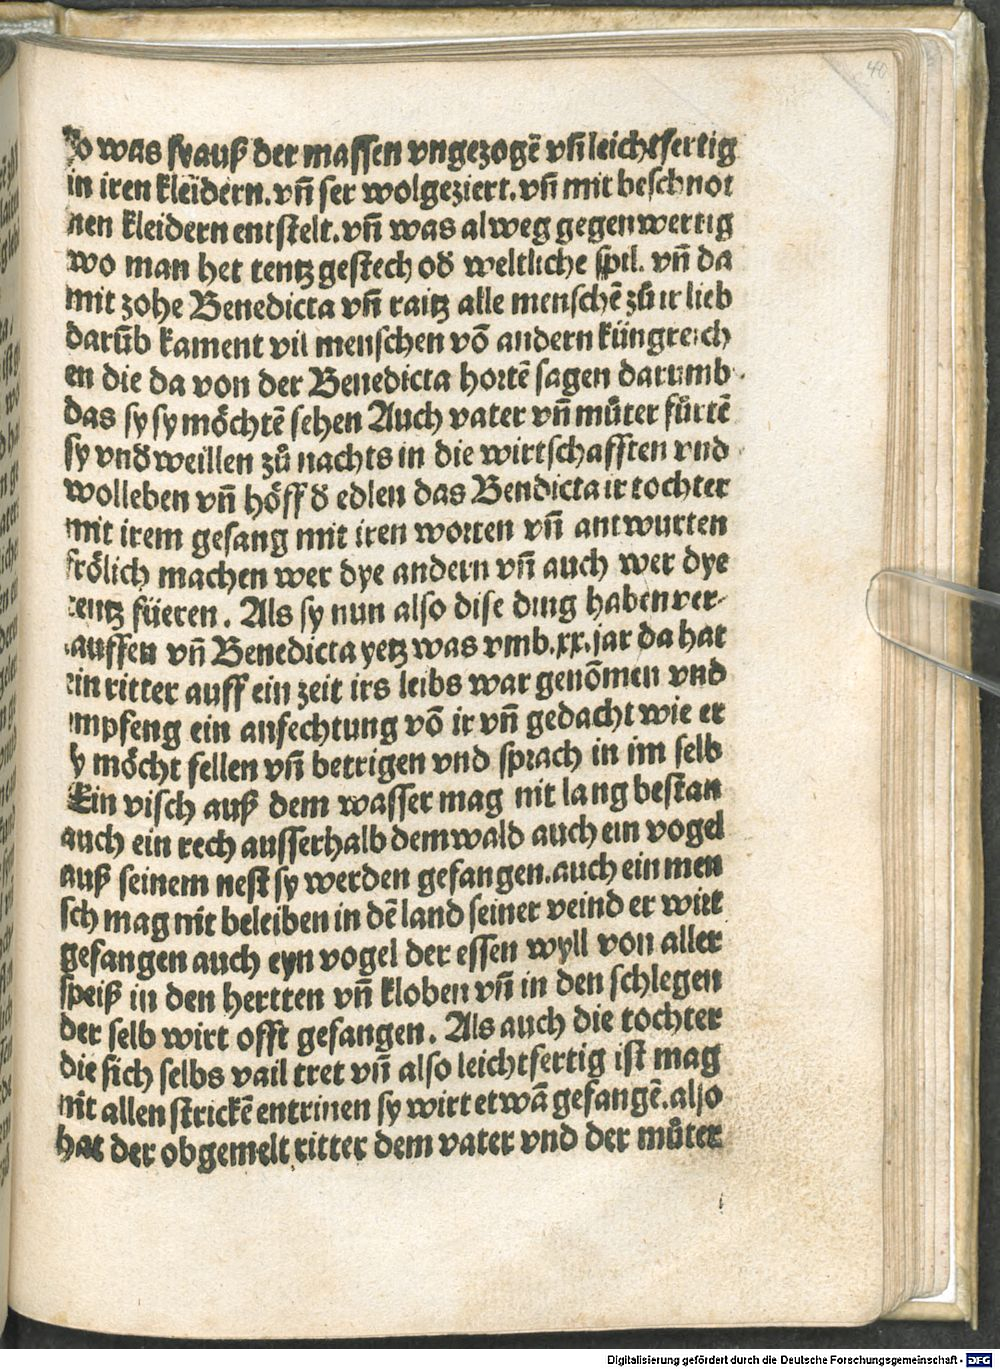 40
so was sy auß der massen vngezogē vñ leichtfertig
in iren kleidern. vñ ser wolgeziert. vñ mit beschnot
nen kleidern entstelt. vñ was alweg gegenwertig
wo man het tentz gestech oď weltliche spil. vñ da
mit zohe Benedicta vñ raitz alle menschē zů ir lieb
darūb kament vil menschen vō andern küngreich
en die da von der Benedicta hortē sagen darumb
das sy sy möchtē sehen Auch vater vñ můter fůrtē
sy vnďweillen zů nachts in die wirtschafften vnd
wolleben vñ höff ď edlen das Bendicta ir tochter
mit irem gesang mit iren worten vñ antwurten
frölich machen wer dye andern vñ auch wer dye
tentz füeren. Als sy nun also dise ding haben ver-
lauffen vñ Benedicta yetz was vmb .xx. jar da hat
ein ritter auff ein zeit irs leibs war genōmen vnd
empfeng ein anfechtung vō ir vñ gedacht wie er
sy möcht fellen vñ betrigen vnd sprach in im selb
Ein visch auß dem wasser mag nit lang bestan
auch ein rech ausserhalb dem wald auch ein vogel
auß seinem nest sy werden gefangen. auch ein men
sch mag nit beleiben in dē land seiner veind er wirt
gefangen auch eyn vogel der essen wyll von aller
speiß in den hertten vñ kloben vñ in den schlegen
der selb wirt offt gefangen. Als auch die tochter
die sich selbs vail tret vñ also leichtfertig ist mag
nit allen strickē entrinen sy wirt etwā gefangē. also
hat der obgemelt ritter dem vater vnd der můter
i
Digitalisierung gefördert durch die Deutsche Forschungsgemeinschaft - DFG